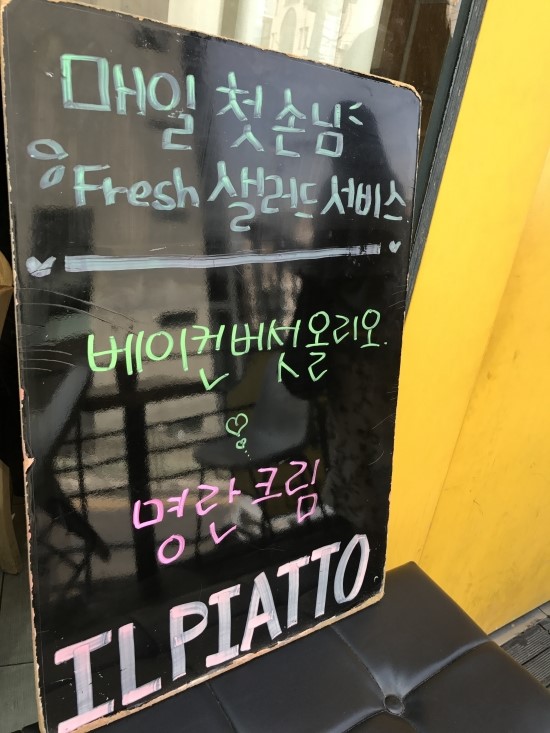 매일 첫손님
Fresh 샐러드 서비스
베이컨버섯올리오
명란크림
IL PIATTO